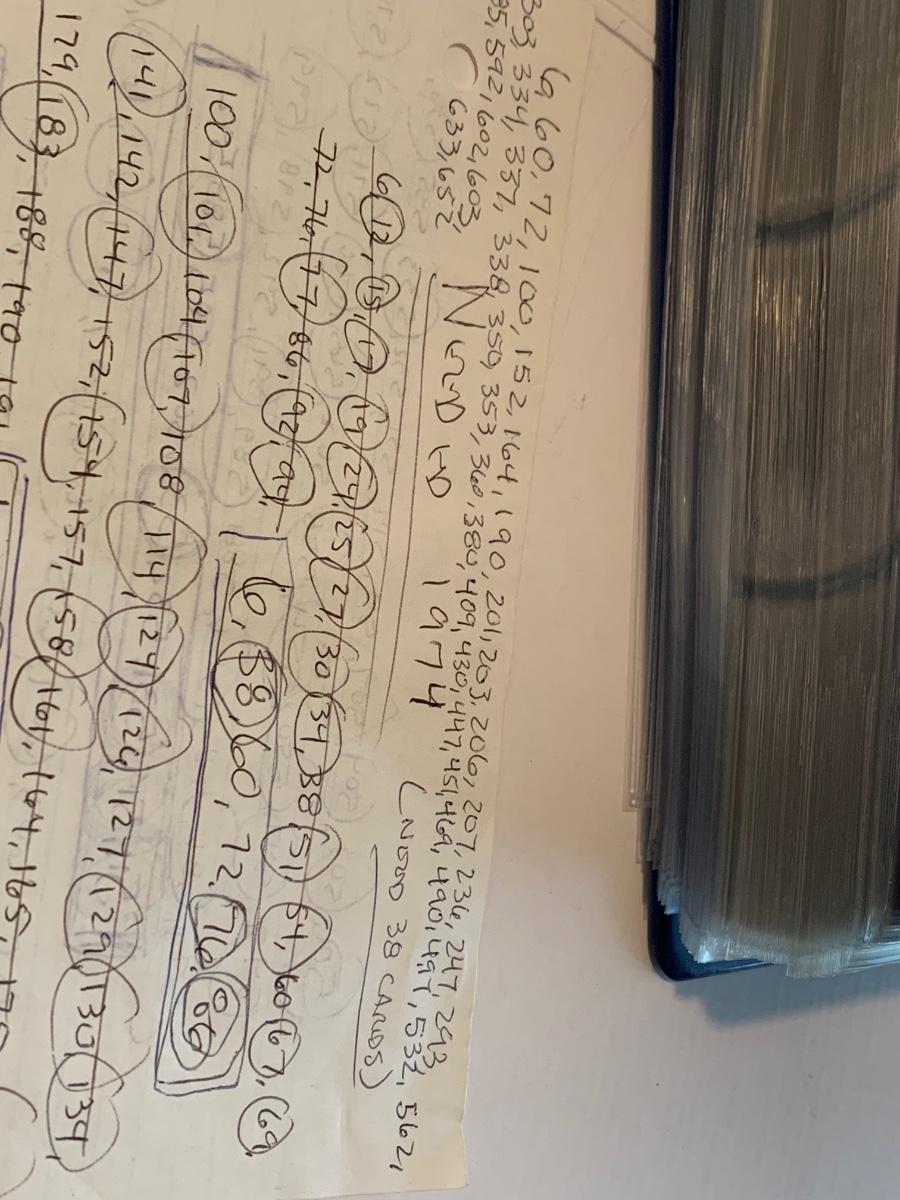 6, 60, 72, 100, 152, 164, 190, 201, 203, 206, 207, 236, 247, 293,
303, 334, 337, 338, 350, 353, 360, 380, 409, 430, 447, 451, 469, 490, 497, 532, 562,
592, 602, 603,
633, 652
NEED 1974
(NEED 38 CARDS)
6, 12, 15, 17, 19, 24, 25, 27, 30, 34, 38, 51, 54, 60, 67, 69,
72, 76, 77, 86, 92, 94,
6, 38, 60, 72, 76, 86
100, 101, 104, 107, 108, 114, 124, 126, 127, 129, 130, 134,
141, 142, 147, 152, 154, 157, 158, 161, 164, 165,
179, 183, 188, 190